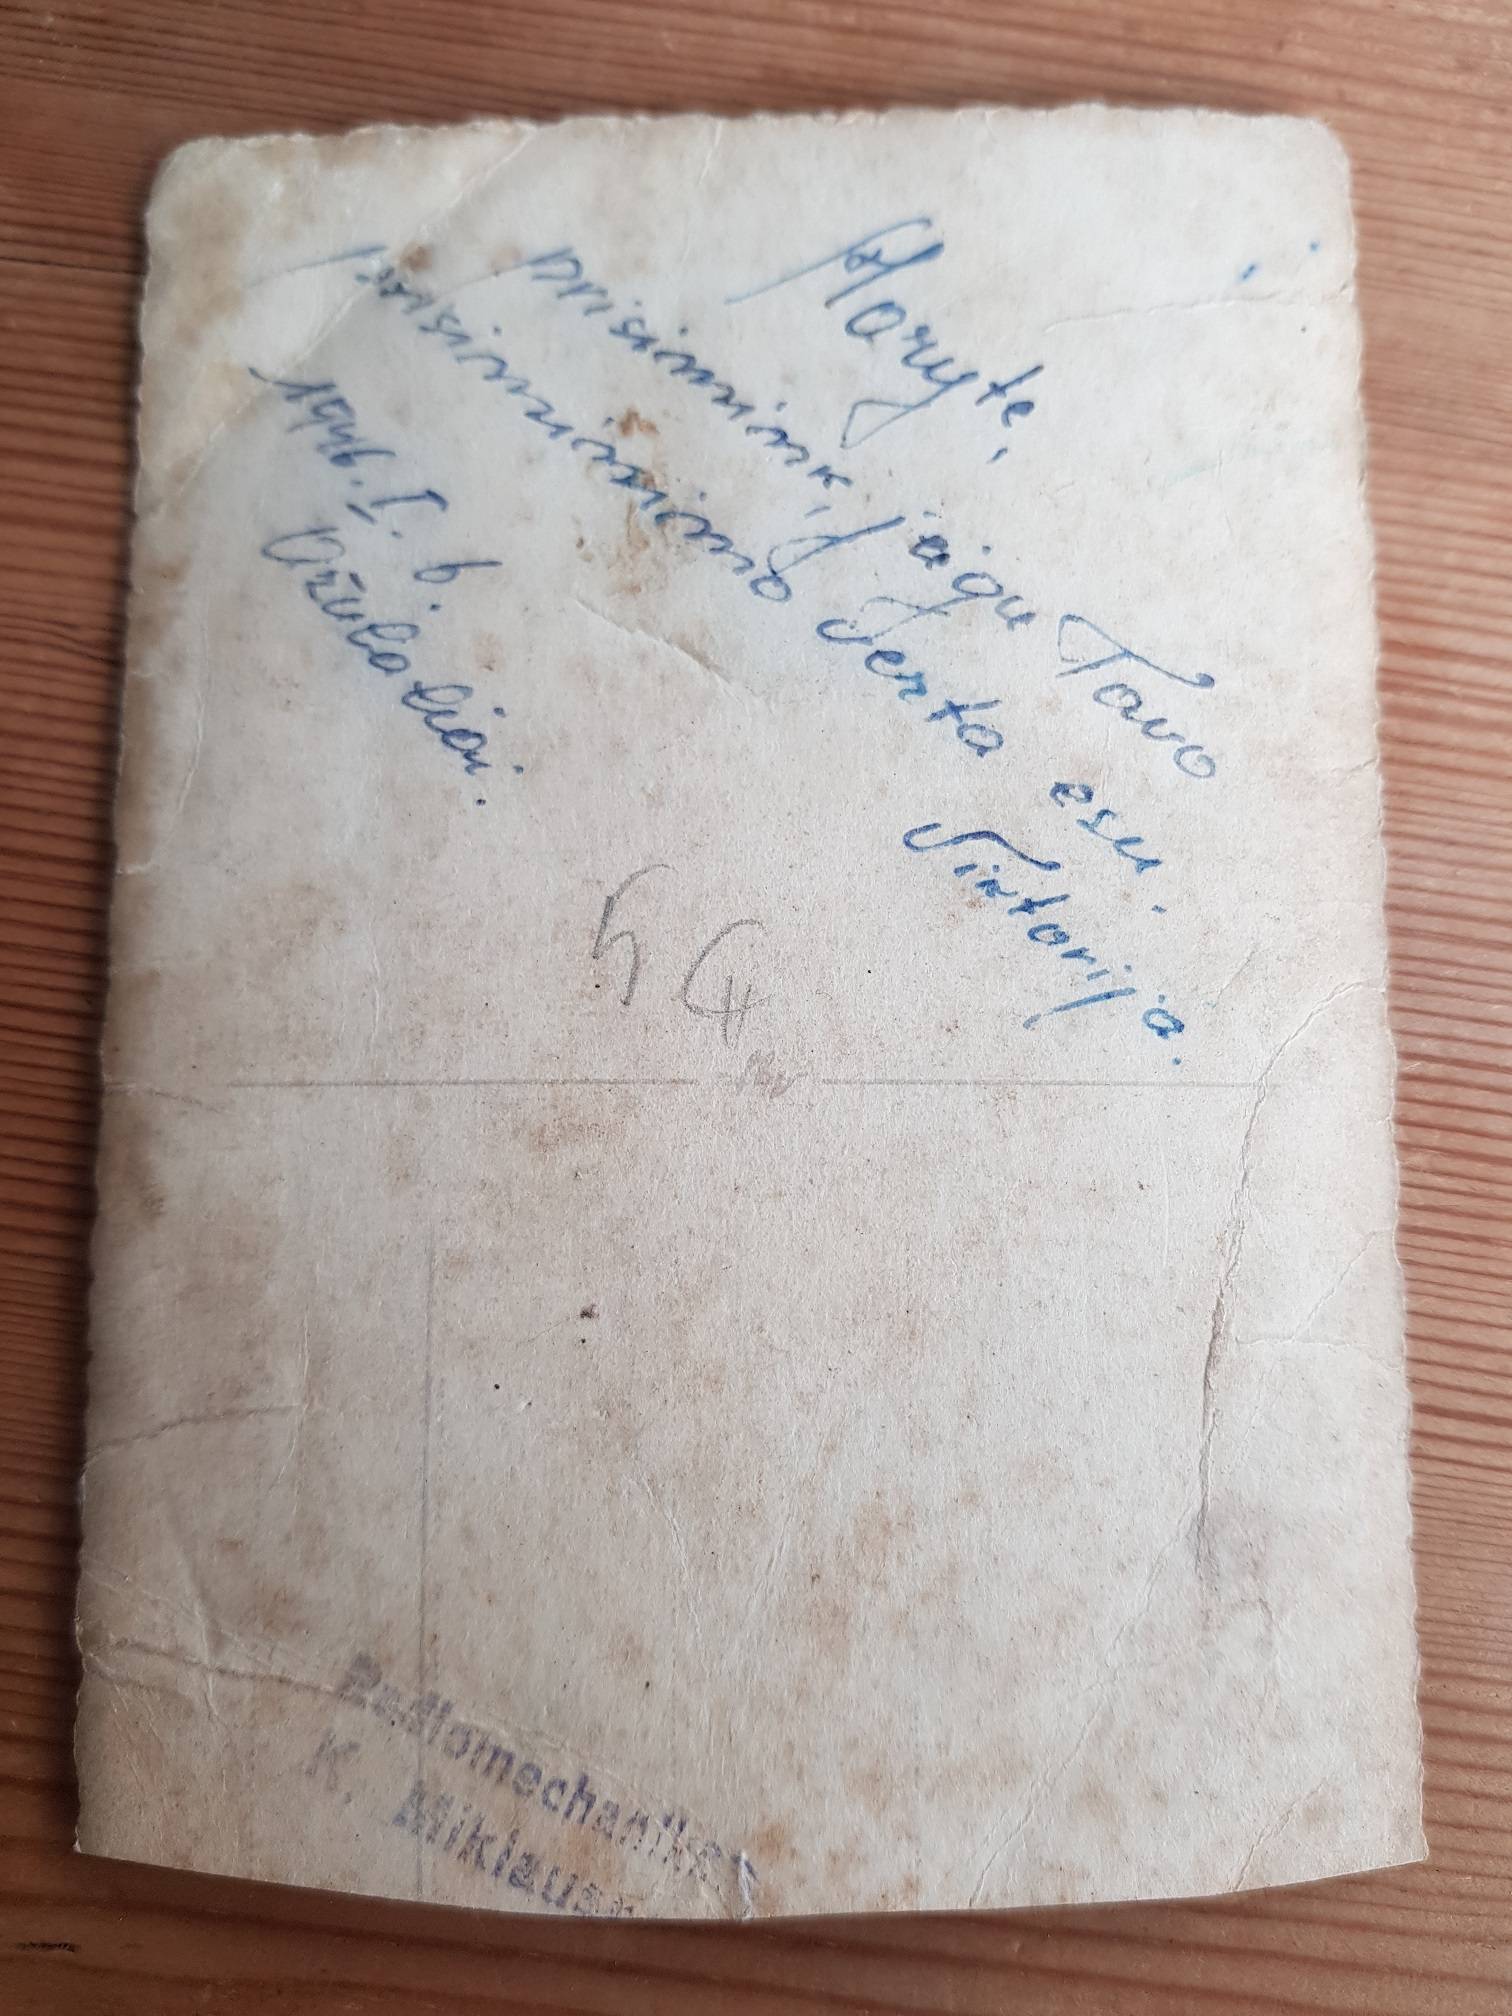 Maryte,
prisimink, jeigu Tavo
prisiminimo verta esu.
Viktorija.
1946. I. 6.
Ąžuolai.
Radiomechanikas
K. Miklaus